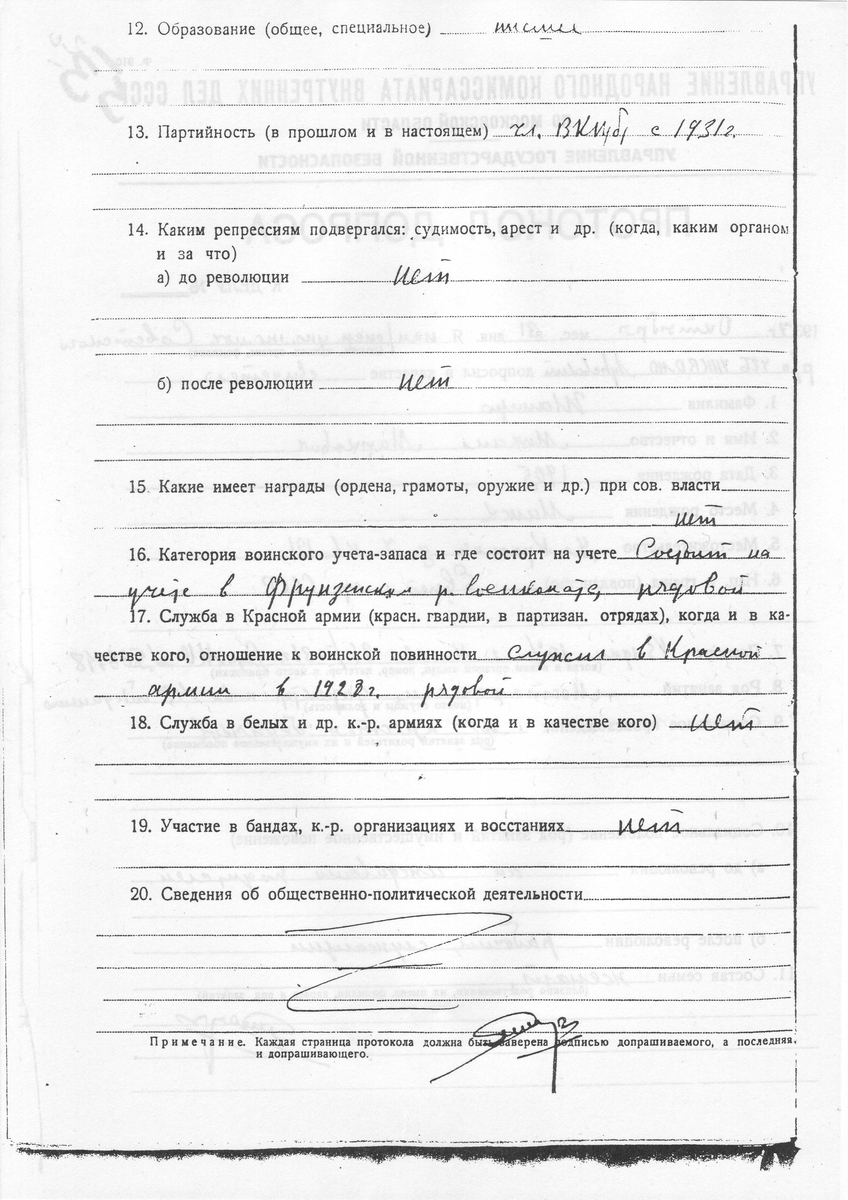 12. Образование (общее, специальное)
13. Партийность (в прошлом и в настоящем) чл. ВКП(б) с 1931г.
14. Каким репрессиям подвергался: судимость, арест и др. (когда, каким органом
и за что)
а) до революции нет
б) после революции нет
15. Какие имеет награды (ордена, грамоты, оружие и др.) при сов. власти
нет
16. Категория воинского учета-запаса и где состоит на учете Состоит на
учете в Фрунзенском р. военкомате, рядовой
17. Служба в Красной армии (красн. гвардии, в партизан. отрядах), когда и в ка-
честве кого, отношение к воинской повинности служил в Красной
армии в 1928г. рядовой
18. Служба в белых и др. к.-р. армиях (когда и в качестве кого) нет
19. Участие в бандах, к.-р. организациях и восстаниях нет
20. Сведения об общественно-политической деятельности
Примечание. Каждая страница протокола должна быть заверена подписью допрашиваемого, а последняя
и допрашивающего.